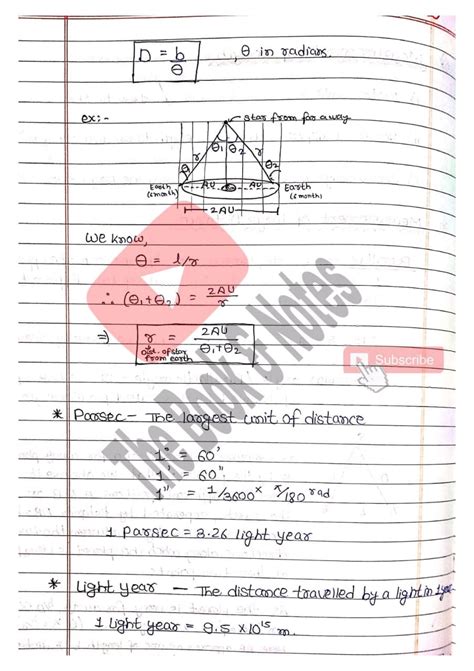 D = b/θ , θ in radians.
ex:- star from far away
θ1 θ2
r r
θ1 θ2
Earth (6 month) AU AU Earth (6 month)
2AU
We know,
θ = l/r
∴ (θ1+θ2) = 2AU/r
⇒ r = 2AU/θ1+θ2
Dist. of star from earth
Subscribe
The Book & Notes
* Parsec - The largest unit of distance
1° = 60'
1' = 60"
1" = 1/3600 × π/180 rad
1 Parsec = 3.26 light year
* Light year - The distance travelled by a light in 1 year.
1 light year = 9.5 × 10^15 m.